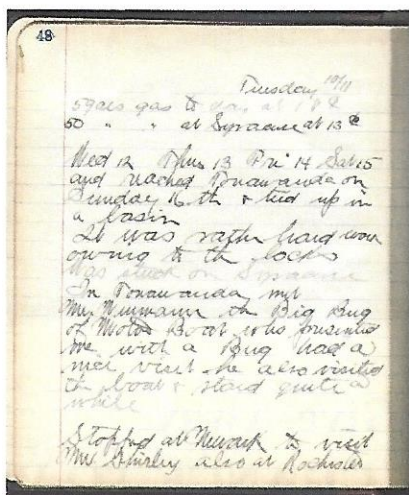 48
Tuesday 10/11
5 gals gas to day at 18¢
50 " " at Syracuse at 13¢
Wed 12 Thus 13 Fri 14 Sat 15
and reached Tonawanda on
Sunday 16th & tied up in
a basin
It was rather hard work
owing to the locks
Was stuck on Syracuse
In Tonawanda met
Mr the Big Bug
of Motor Boat who presented
me with a Bug had a
nice visit he also visited
the boat & staid quite a
while
Stopped at Newark to visit
Mr Shirley also at Rochester